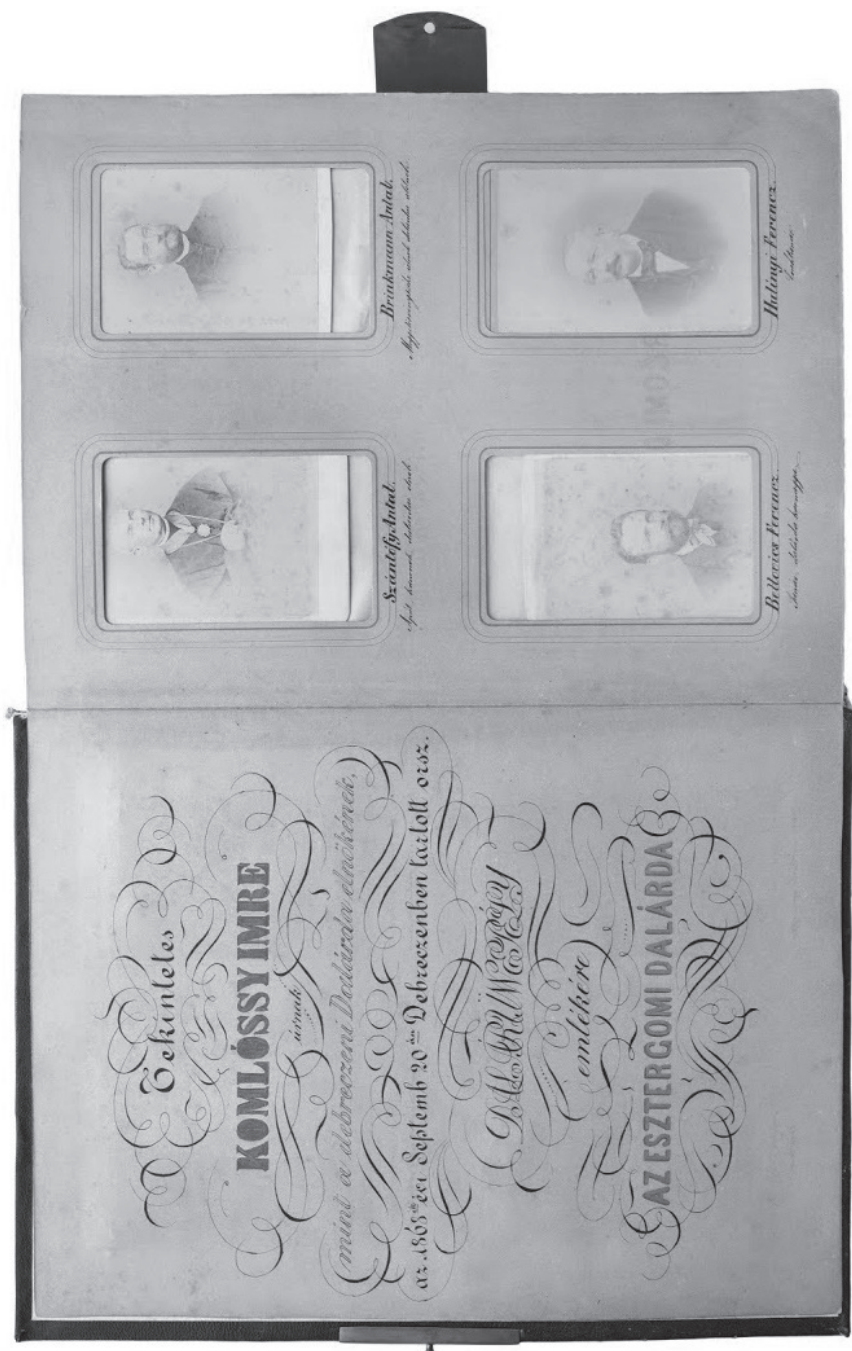 Tekintetes
KOMLÓSSY IMRE
úrnak
mint a debreczeni Dalárda elnökének,
az 1868ik évi Septemb 20án Debreczenben tartott orsz.
DALÁRÜNNEPÉLY
emlékére
AZ ESZTERGOMI DALÁRDA
Szántófy Antal.
Brinkmann Antal.
Bellovics Ferencz.
Hulinyi Ferencz.